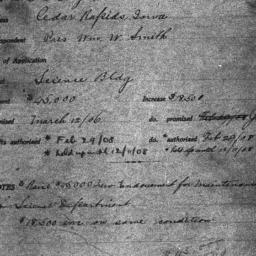 Cedar Rapids, Iowa
Pres Wm. W. Smith
of Application
Science Bldg
$45,000 Increase $18500
March 12/06. do. promised
authorised * Feb 29/08 do. *authorised Feb 29/08
* held up until 12/11/08 * held up until 12/11/08
NOTES * Raise $45000 New Endowment for Maintenance
Science Department
$18,500 inc on same condition